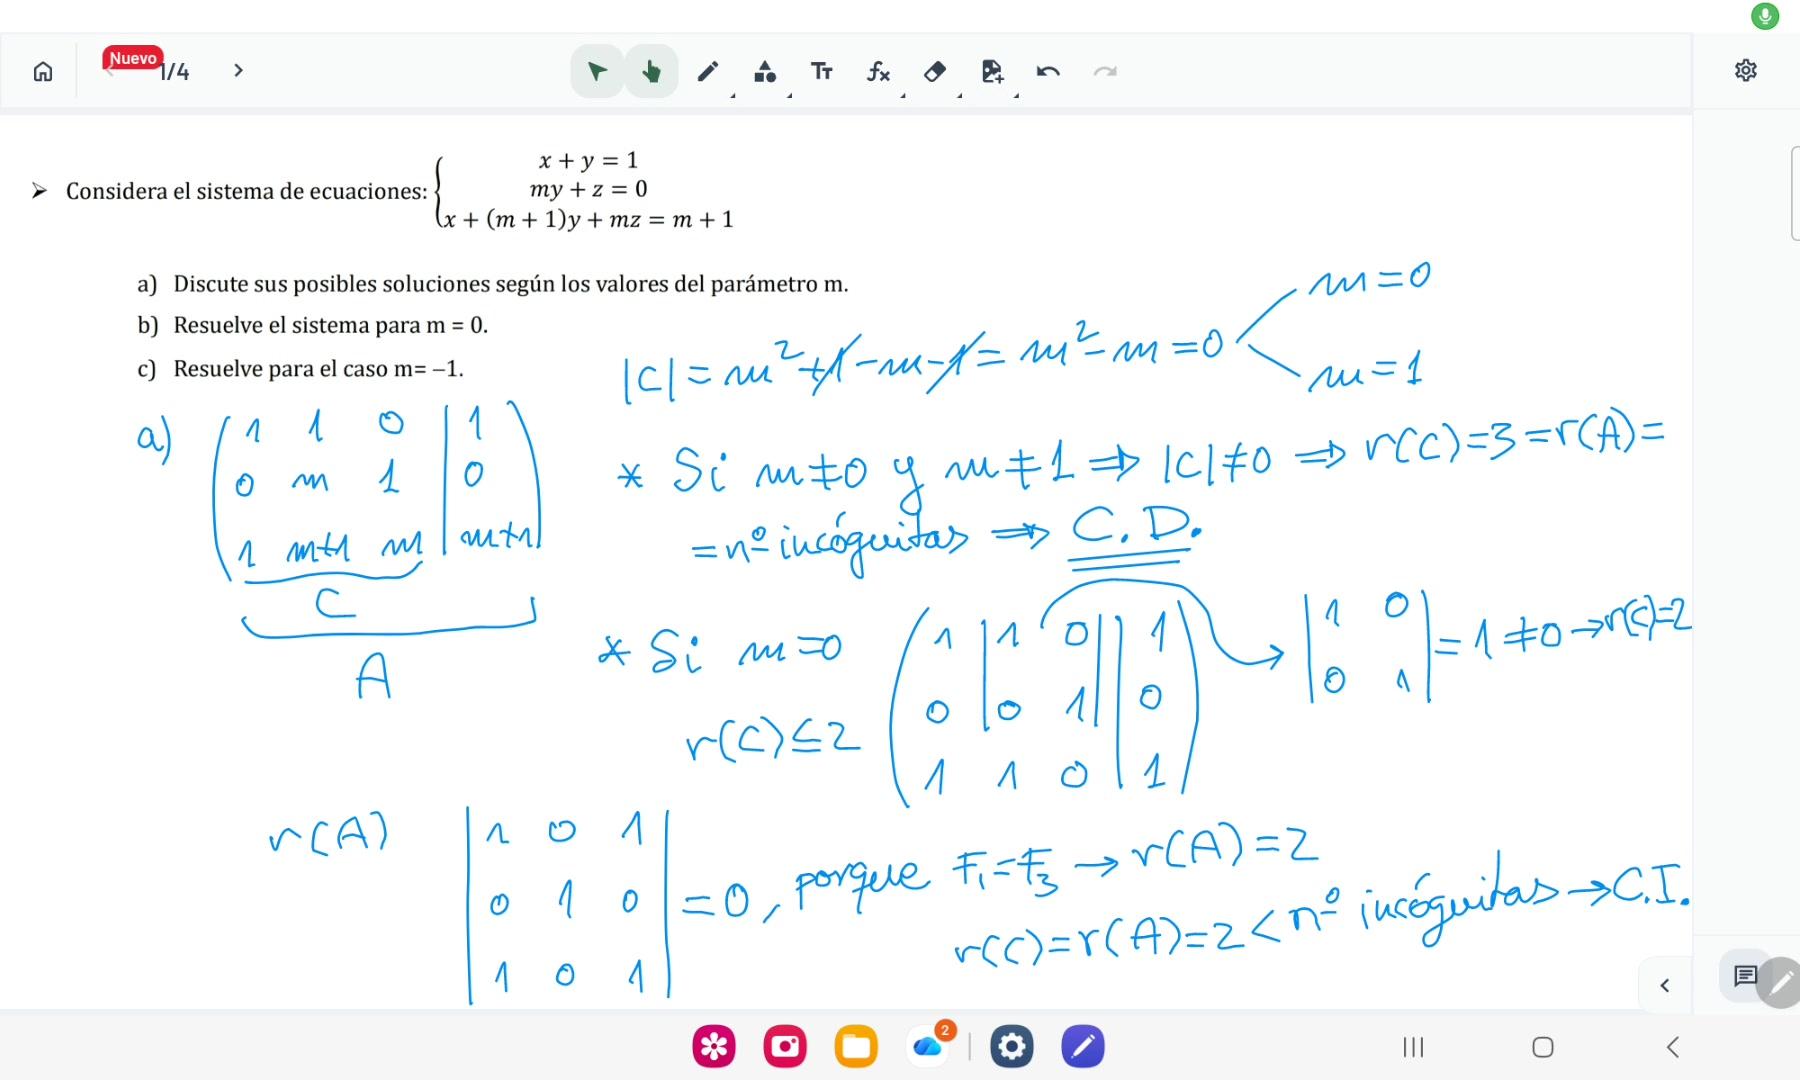 Nuevo
1/4
➤ Considera el sistema de ecuaciones: { x + y = 1
my + z = 0
x + (m + 1)y + mz = m + 1
a) Discute sus posibles soluciones según los valores del parámetro m.
b) Resuelve el sistema para m = 0.
c) Resuelve para el caso m= −1.
|C| = m²+1−m−1= m²−m =0 < m=0
m=1
a) ( 1 1 0 | 1 )
0 m 1 | 0
1 m+1 m | m+1
C
A
* Si m≠0 y m≠1 ⇒ |C|≠0 ⇒ r(C)=3=r(A)=
=nº incóguitas ⇒ C.D.
* Si m=0 ( 1 |1 0| | 1 ) → |1 0| = 1≠0→r(C)=2
0 |0 1| | 0 |0 1|
r(C)≤2
1 1 0 | 1
r(A) |1 0 1|
|0 1 0| =0, porque F₁=F₃ → r(A)=2
|1 0 1| r(C)=r(A)=2< nº incóguitas→C.I.
2